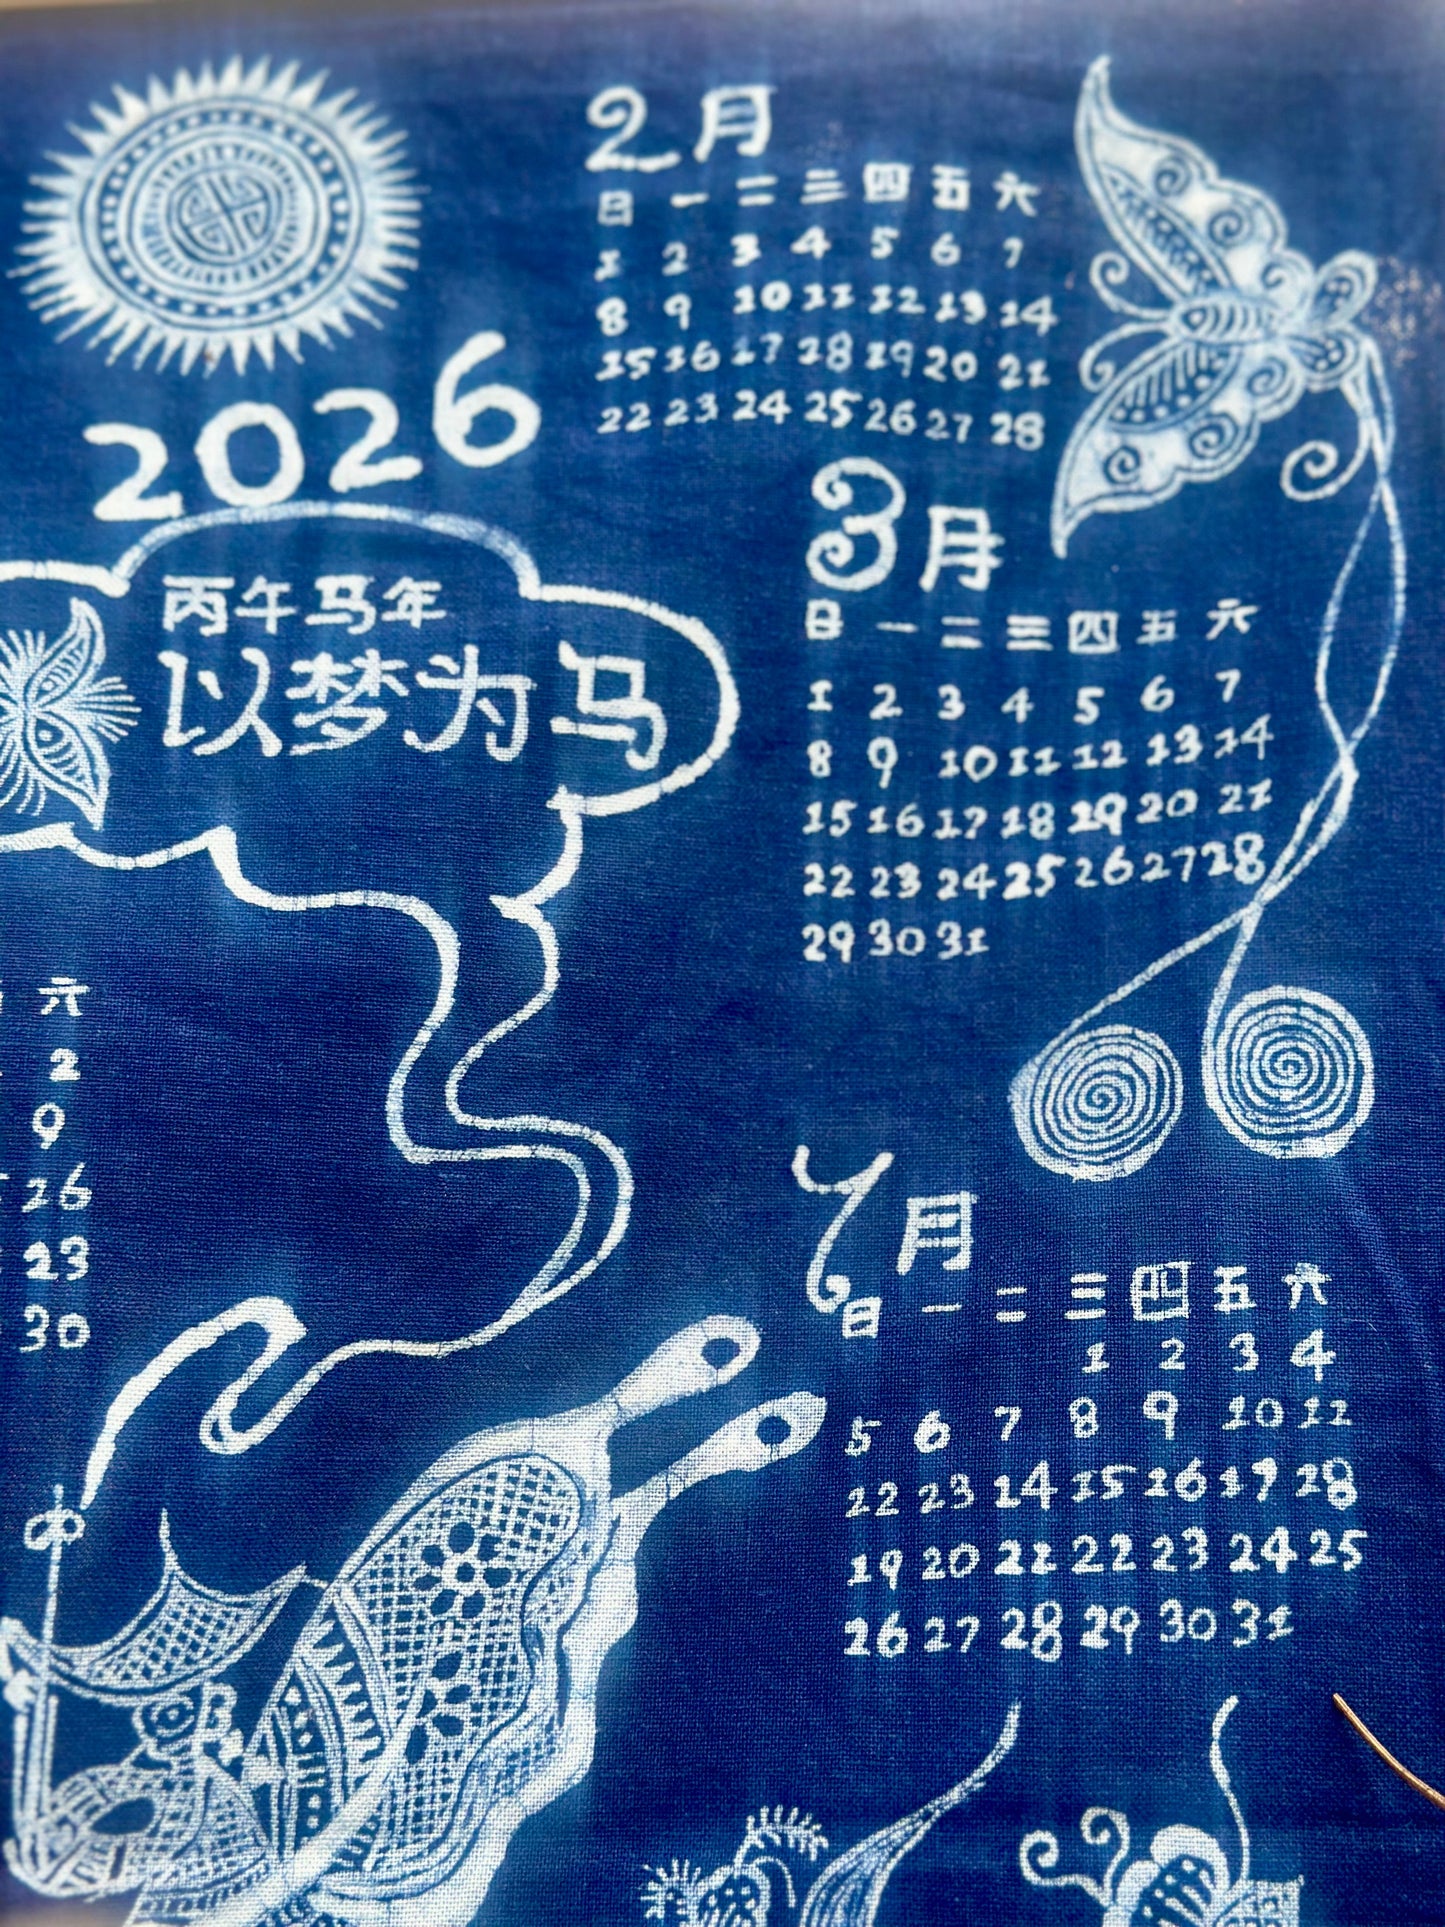 2026
丙午马年
以梦为马
2月
日 一 二 三 四 五 六
1 2 3 4 5 6 7
8 9 10 11 12 13 14
15 16 17 18 19 20 21
22 23 24 25 26 27 28
3月
日 一 二 三 四 五 六
1 2 3 4 5 6 7
8 9 10 11 12 13 14
15 16 17 18 19 20 21
22 23 24 25 26 27 28
29 30 31
六
2
9
16
23
30
7月
日 一 二 三 四 五 六
1 2 3 4
5 6 7 8 9 10 11
12 13 14 15 16 17 18
19 20 21 22 23 24 25
26 27 28 29 30 31